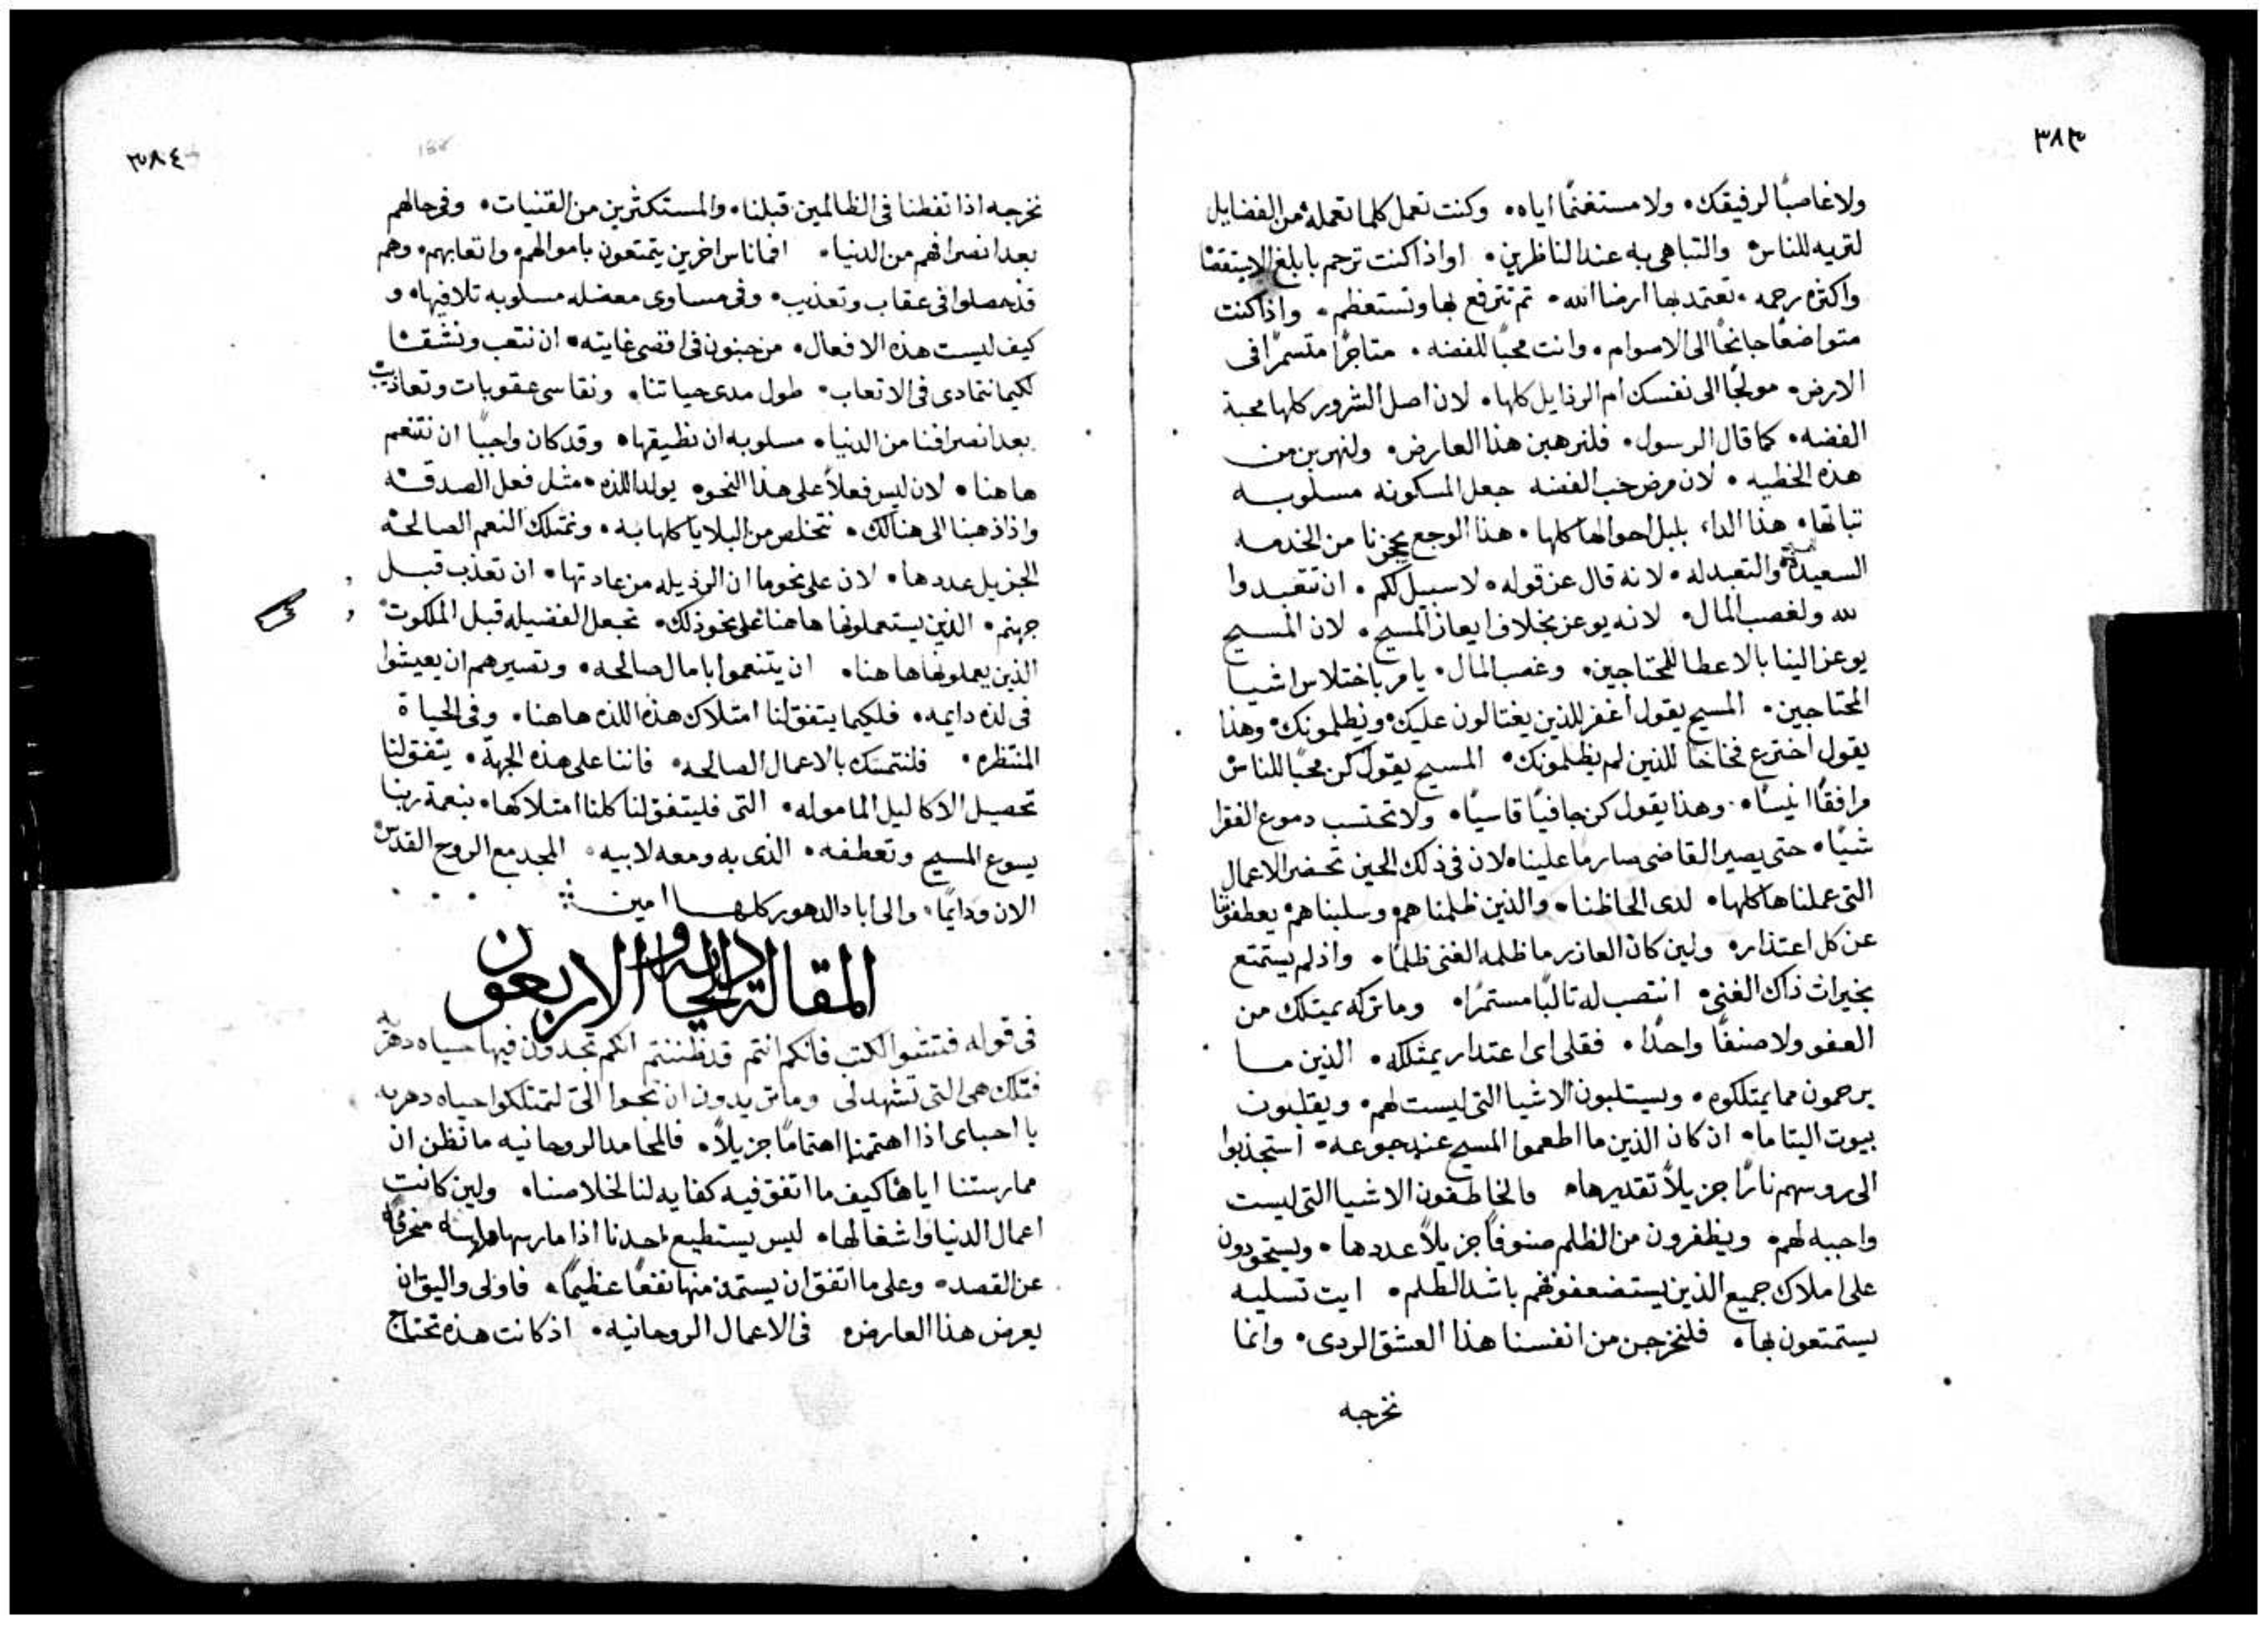 ٣٨٣
ولا غاصبًا لرفيقك٠ ولا مستغنمًا اياه٠ وكنت تعمل كلما تعمله من الفضايل
لتريه للناس والتباهى به عند الناظرين٠ او اذا كنت ترحم بابلغ الاستقصا
واكثره رحمه٠ تعتمد بها ارضا الله٠ ثم تترفع بها وتستعظم٠ واذا كنت
متواضعًا جانحًا الى الاصوام٠ وانت محبًا للفضه٠ متاجرًا متسمرًا فى
الارض٠ مولجًا الى نفسك ام الرذايل كلها٠ لان اصل الشرور كلها محبة
الفضه٠ كما قال الرسول٠ فلنرهبن هذا العارض٠ ولنهربن من
هذه الخطيه٠ لان مرض حب الفضه جعل المسكونه مسلوبه
ثباتها٠ هذا الداء بلبل احوالها كلها٠ هذا الوجع يحجزنا من الخدمه
السعيده والتعبد له٠ لانه قال عن قوله٠ لا سبيل لكم٠ ان تتعبدوا
لله ولغصب المال٠ لانه يوعز بخلاف ايعاز المسيح٠ لان المسيح
يوعز الينا بالاعطا للمحتاجين٠ وغصب المال٠ يامر باختلاس اشيا
المحتاجين٠ المسيح يقول اغفر للذين يغتالون عليك٠ ويظلمونك٠ وهذا
يقول اخترع فخاخًا للذين لم يظلمونك٠ المسيح يقول كن محبًا للناس
مرافقًا انيسًا٠ وهذا يقول كن جافيًا قاسيًا٠ ولا تحتسب دموع الفقرا
شيًا٠ حتى يصير القاضى صارمًا علينا٠ لان فى ذلك الحين تحضر الاعمال
التى عملناها كلها٠ لدى الحاظنا٠ والذين ظلمناهم٠ وسلبناهم٠
عن كل اعتذار٠ ولين كان العاذر ما ظلمه الغنى ظلمًا٠ واذ لم يستمتع
بخيرات ذاك الغنى٠ انتصب له ثالبًا مستمرًا٠ وما تركه يمتلك من
العفو ولا صنفًا واحدًا٠ فقل لى اى اعتدار يمتلكه٠ الذين ما
يرحمون مما يمتلكوه٠ ويستلبون الاشيا التى ليست لهم٠ ويقلبون
بيوت اليتاما٠ ان كان الذين ما اطعموا المسيح عند جوعه٠ استجذبوا
الى روسهم نارًا جزيلًا تقديرها٠ فالخاطفون الاشيا التى ليست
واجبه لهم٠ ويظفرون من الظلم صنوفًا جزيلًا عددها٠ ويستحوذون
على املاك جميع الذين يستضعفونهم باشد الظلم٠ ايت تسليه
يستمتعون بها٠ فلنخرجن من انفسنا هذا العشق الردى٠ وانما
نخرجه
٣٨٤
نخرجه اذا تفطنا فى الظالمين قبلنا٠ والمستكثرين من القنيات٠ وفى حالهم
بعد انصرافهم من الدنيا٠ افما ناس اخرين يتمتعون باموالهم٠ واتعابهم٠ وهم
قد حصلوا فى عقاب وتعذيب٠ وفى مساوى معضله مسلوبه تلافيها٠ و
كيف ليست هذه الافعال٠ من جنون فى اقصى غايته٠ ان نتعب ونشقا
لكيما نتمادى فى الاتعاب٠ طول مدى حياتنا٠ ونقاسى عقوبات وتعاذيب
بعد انصرافنا من الدنيا٠ مسلوبه ان نطيقها٠ وقد كان واجبًا ان نتنعم
هاهنا٠ لان ليس فعلًا على هذا النحو٠ يولد اللذه٠ مثل فعل الصدقه
واذا ذهبنا الى هنالك٠ نتخلص من البلايا كلها به٠ ونمتلك النعم الصالحه
الجزيل عددها٠ لان على نحو ما ان الرذيله من عادتها٠ ان تعذب قبل
جهنم٠ الذين يستعملونها هاهنا على نحو ذلك٠ تجعل الفضيله قبل الملكوت
الذين يعملونها هاهنا٠ ان يتنعموا بامال صالحه٠ وتصيرهم ان يعيشوا
فى لذه دايمه٠ فلكيما يتفق لنا امتلاك هذه اللذه هاهنا٠ وفى الحياة
المنتظره٠ فلنتمسك بالاعمال الصالحه٠ فاننا على هذه الجهة٠ يتفق لنا
تحصيل الاكاليل الماموله٠ التى فليتفق لنا كلنا امتلاكها٠ بنعمة ربنا
يسوع المسيح وتعطفه٠ الذى به ومعه لابيه٠ المجد مع الروح القدس
الان ودايمًا٠ والى اباد الدهور كلها امين
المقالة الحاديه والاربعون
فى قوله فتشوا الكتب فانكم انتم قد ظننتم انكم تجدون فيها حياه دهريه
فتلك هى التى تشهد لى وما تريدون ان تجوا الىّ لتمتلكوا حياه دهريه
يا احباى اذا اهتممنا اهتمامًا جزيلًا٠ فالمحامد الروحانيه ما نظن ان
ممارستنا اياها كيف ما اتفق فيه كفايه لنا لخلاصنا٠ ولين كانت
اعمال الدنيا واشغالها٠ ليس يستطيع احدنا اذا مارسها ممارسه منحرفه
عن القصد٠ وعلى ما اتفق ان يستمد منها نفعًا عظيمًا٠ فاولى واليق ان
يعرض هذا العارض٠ فى الاعمال الروحانيه٠ اذ كانت هذه تحتاج